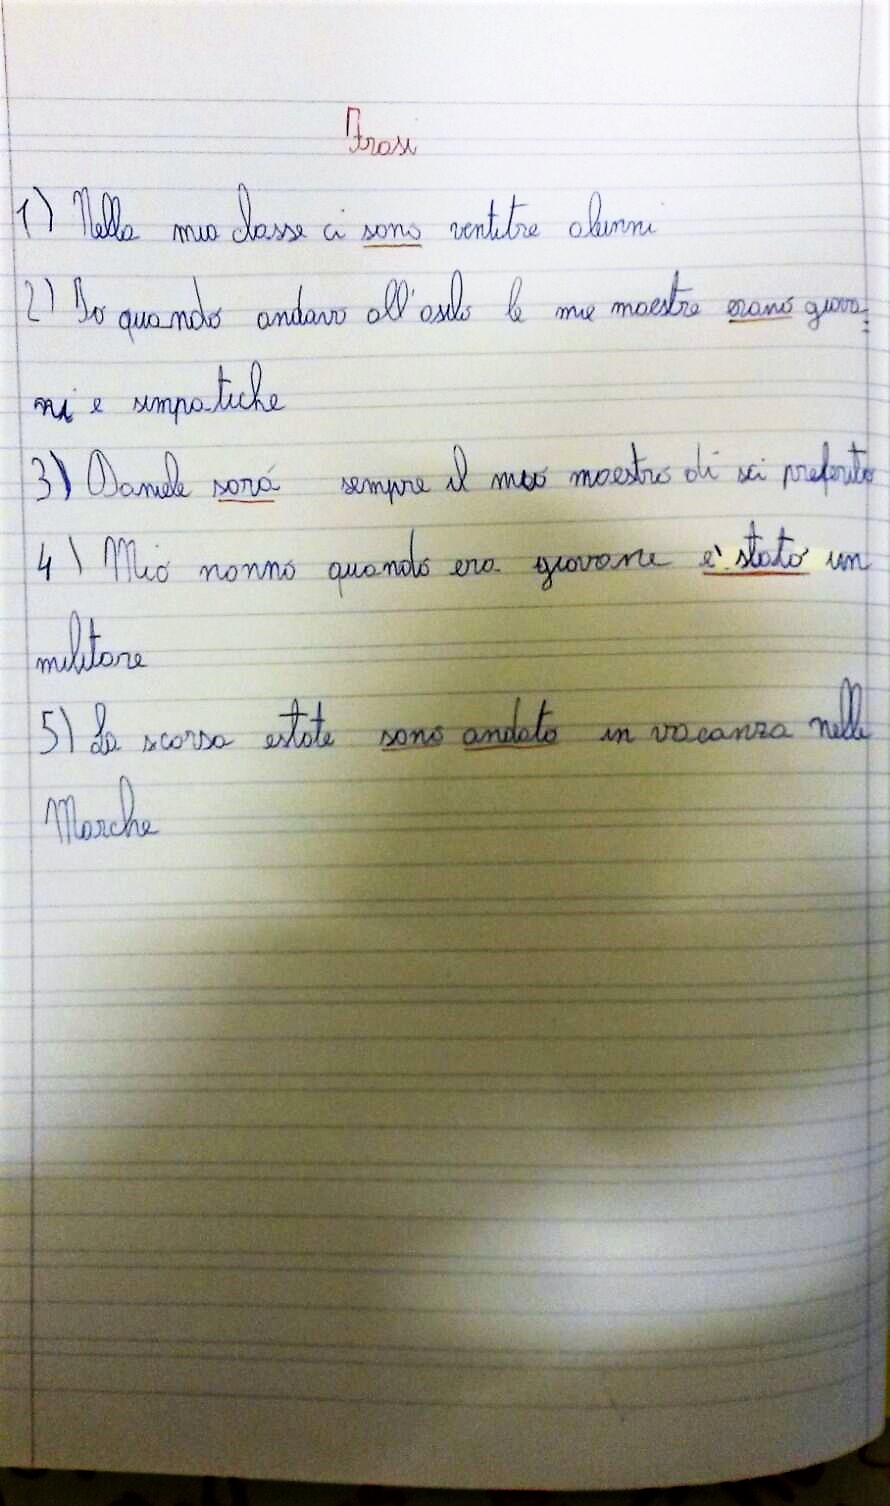 Frasi
1) Nella mia classe ci sono ventitre alunni
2) Io quando andavo all'asilo le mie maestre erano giova=
ni e simpatiche
3) Daniele sará sempre il mio maestro di sci preferito
4) Mio nonno quando era giovane e' stato un
militare
5) La scorsa estate sono andato in vacanza nelle
Marche